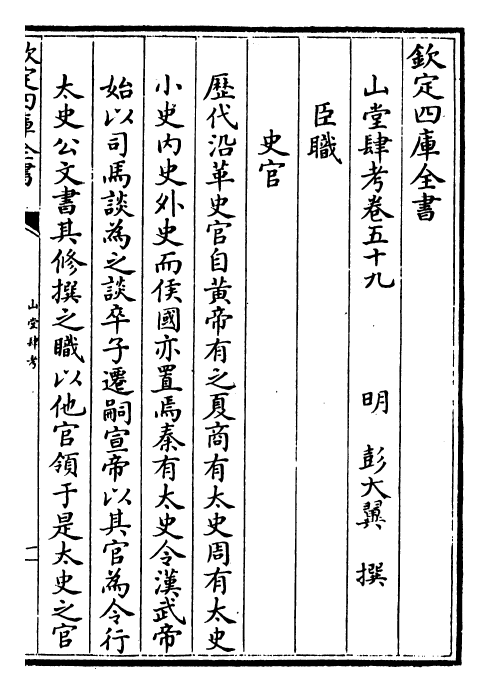 欽定四庫全書
山堂肆考卷五十九　　明　彭大翼　撰
臣職
史官
歷代沿革史官自黃帝有之夏商有太史周有太史
小史内史外史而侯國亦置焉秦有太史令漢武帝
始以司馬談為之談卒子遷嗣宣帝以其官為令行
太史公文書其修撰之職以他官領于是太史之官
欽定四庫全書
山堂肆考
一